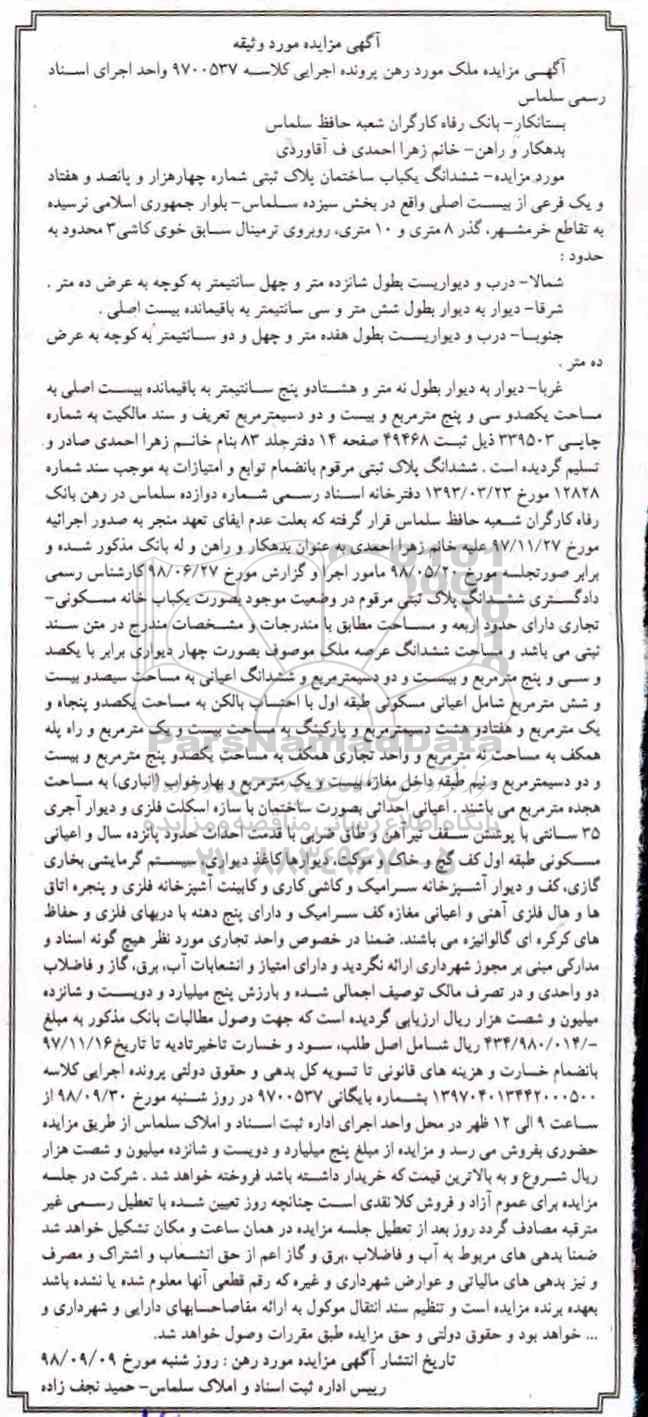 آگهی مزایده مورد وثیقه
آگهـی مزایده ملک مورد رهن پرونده اجرایی کلاسـه ۹۷۰۰۵۳۷ واحد اجرای اسـناد
رسمی سلماس
بستانکار- بانک رفاه کارگران شعبه حافظ سلماس
بدهکار و راهن- خانم زهرا احمدی ف آقاوردی
مورد مزایده- ششدانگ یکباب ساختمان پلاک ثبتی شماره چهارهزار و پانصد و هفتاد
و یک فرعی از بیسـت اصلی واقع در بخش سیزده سـلماس- بلوار جمهوری اسلامی نرسیده
به تقاطع خرمشـهر، گذر ۸ متری و ۱۰ متری، روبروی ترمینال سـابق خوی کاشی۳ محدود به
حدود :
شمالا- درب و دیواریست بطول شانزده متر و چهل سانتیمتر به کوچه به عرض ده متر .
شرقا- دیوار به دیوار بطول شش متر و سی سانتیمتر به باقیمانده بیست اصلی .
جنوبـا- درب و دیواریسـت بطول هفده متر و چهل و دو سـانتیمتر به کوچه به عرض
ده متر .
غربا- دیوار به دیوار بطول نه متر و هشـتادو پنج سـانتیمتر به باقیمانده بیسـت اصلی به
مساحت یکصدو سی و پنج مترمربع و بیست و دو دسیمترمربع تعریف و سند مالکیت به شماره
چاپـی ۳۳۹۵۰۳ ذیل ثبـت ۴۹۴۶۸ صفحه ۱۴ دفترجلد ۸۳ بنام خانـم زهرا احمدی صادر و
تسلیم گردیده است . ششدانگ پلاک ثبتی مرقوم بانضمام توابع و امتیازات به موجب سند شماره
۱۲۸۲۸ مورخ ۱۳۹۳/۰۳/۲۳ دفترخانه اسـناد رسـمی شـماره دوازده سلماس در رهن بانک
رفاه کارگران شـعبه حافظ سلماس قرار گرفته که بعلت عدم ایفای تعهد منجر به صدور اجرائیه
مورخ ۹۷/۱۱/۲۷ علیه خانم زهرا احمدی به عنوان بدهکار و راهن و له بانک مذکور شـده و
برابر صورتجلسـه مورخ ۹۸/۰۵/۲۰ مامور اجرا و گزارش مورخ ۹۸/۰۶/۲۷ کارشناس رسمی
دادگسـتری ششـدانگ پلاک ثبتی مرقوم در وضعیت موجود بصورت یکباب خانه مسـکونی-
تجاری دارای حدود اربعه و مسـاحت مطابق با مندرجات و مشـخصات مندرج در متن سـند
ثبتی می باشد و مساحت ششدانگ عرصه ملک موصوف بصورت چهار دیواری برابر با یکصد
و سـی و پنج مترمربع و بیسـت و دو دسیمترمربع و ششدانگ اعیانی به مساحت سیصدو بیست
و شش مترمربع شامل اعیانی مسکونی طبقه اول با احتساب بالکن به مساحت یکصدو پنجاه و
یک مترمربع و هفتادو هشت دسیمترمربع و پارکینگ به مساحت بیست و یک مترمربع و راه پله
همکف به مساحت نه مترمربع و واحد تجاری همکف به مساحت یکصدو پنج مترمربع و بیست
و دو دسیمترمربع و نیم طبقه داخل مغازه بیست و یک مترمربع و بهارخواب (انباری) به مساحت
هجده مترمربع می باشند . اعیانی احداثی بصورت ساختمان با سازه اسکلت فلزی و دیوار آجری
۳۵ سـانتی با پوشش سـقف تیرآهن و طاق ضربی با قدمت احداث حدود پانزده سال و اعیانی
مسـکونی طبقه اول کف گچ و خاک و موکت، دیوارها کاغذ دیواری، سیسـتم گرمایشی بخاری
گازی، کف و دیوار آشـپزخانه سـرامیک و کاشی کاری و کابینت آشپزخانه فلزی و پنجره اتاق
ها و هال فلزی آهنی و اعیانی مغازه کف سـرامیک و دارای پنج دهنه با دربهای فلزی و حفاظ
های کرکره ای گالوانیزه می باشند. ضمنا در خصوص واحد تجاری مورد نظر هیچ گونه اسناد و
مدارکی مبنی بر مجوز شهرداری ارائه نگردید و دارای امتیاز و انشعابات آب، برق، گاز و فاضلاب
دو واحدی و در تصرف مالک توصیف اجمالی شـده و بارزش پنج میلیارد و دویسـت و شانزده
میلیون و شصت هزار ریال ارزیابی گردیده است که جهت وصول مطالبات بانک مذکور به مبلغ
-/۴۳۴/۹۸۰/۰۱۴ ریال شـامل اصل طلب، سـود و خسارت تاخیرتادیه تا تاریخ۹۷/۱۱/۱۶
بانضمام خسارت و هزینه های قانونی تا تسویه کل بدهی و حقوق دولتی پرونده اجرایی کلاسه
۱۳۹۷۰۴۰۱۳۴۴۲۰۰۰۵۰۰ بشـماره بایگانی ۹۷۰۰۵۳۷ در روز شـنبه مورخ ۹۸/۰۹/۳۰ از
سـاعت ۹ الی ۱۲ ظهر در محل واحد اجرای اداره ثبت اسـناد و املاک سلماس از طریق مزایده
حضوری بفروش می رسد و مزایده از مبلغ پنج میلیارد و دویست و شانزده میلیون و شصت هزار
ریال شـروع و به بالاترین قیمت که خریدار داشـته باشد فروخته خواهد شد . شرکت در جلسـه
مزایده برای عموم آزاد و فروش کلا نقدی اسـت چنانچه روز تعیین شـده با تعطیل رسـمی غیر
مترقبه مصادف گردد روز بعد از تعطیل جلسه مزایده در همان ساعت و مکان تشکیل خواهد شد
ضمنا بدهی های مربوط به آب و فاضلاب ،برق و گاز اعم از حق انشـعاب و اشتراک و مصرف
و نیز بدهی های مالیاتی و عوارض شهرداری و غیره که رقم قطعی آنها معلوم شده یا نشده باشد
بعهده برنده مزایده است و تنظیم سند انتقال موکول به ارائه مفاصاحسابهای دارایی و شهرداری و
... خواهد بود و حقوق دولتی و حق مزایده طبق مقررات وصول خواهد شد.
تاریخ انتشار آگهی مزایده مورد رهن : روز شنبه مورخ ۹۸/۰۹/۰۹
رییس اداره ثبت اسناد و املاک سلماس- حمید نجف زاده
ParsNamadData
پایگاه اطلاع رسانی مناقصه و مزایده